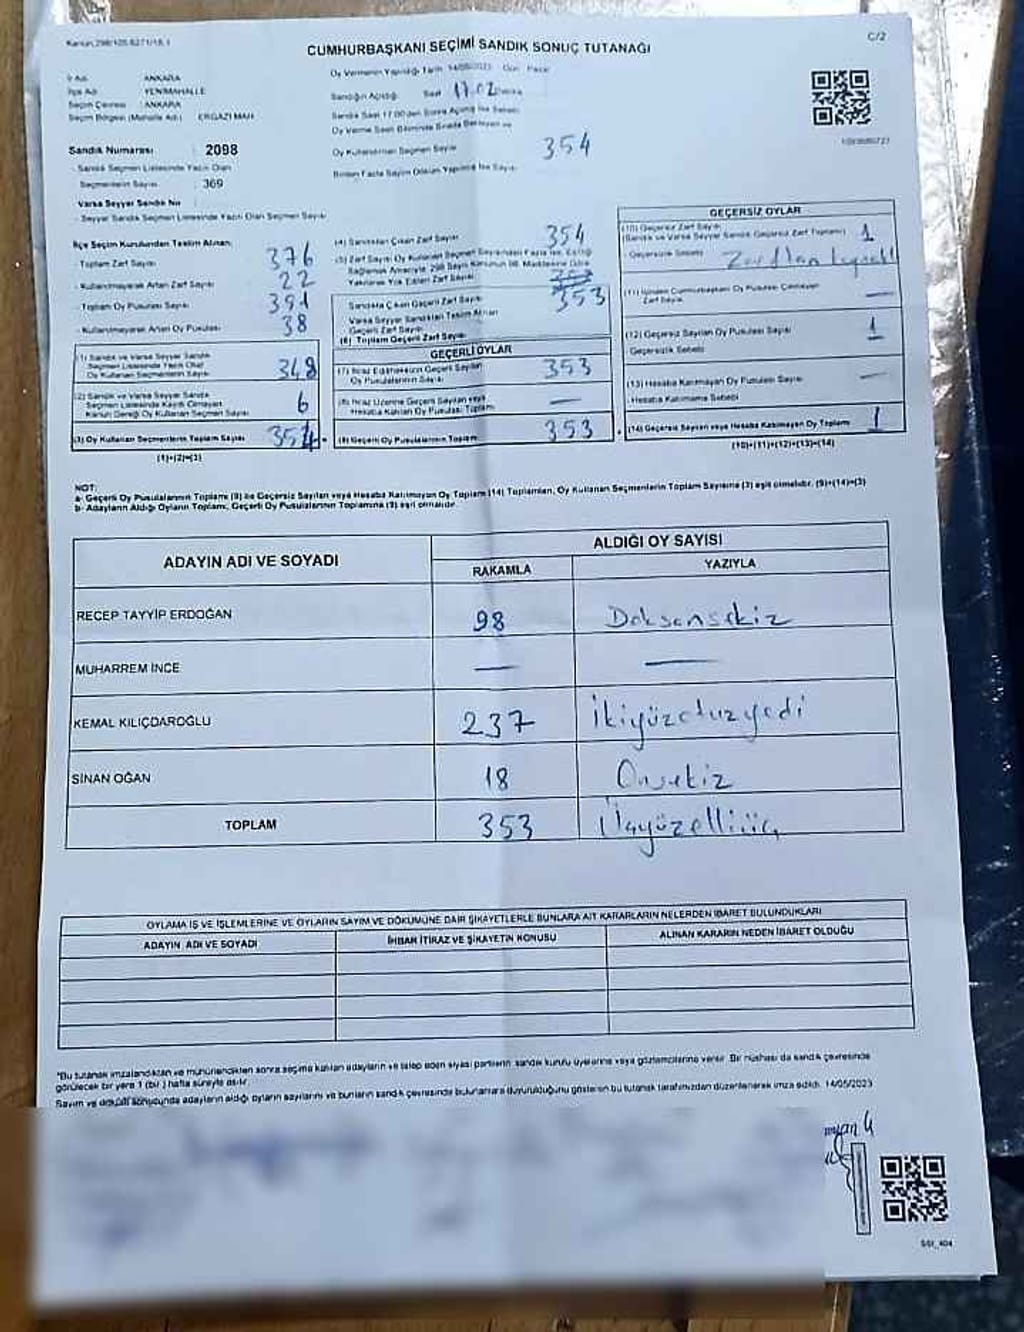 Kanun:298/105.6271/18.1
C/2
CUMHURBAŞKANI SEÇİMİ SANDIK SONUÇ TUTANAĞI
İl Adı : ANKARA
İlçe Adı : YENİMAHALLE
Seçim Çevresi : ANKARA
Seçim Bölgesi (Mahalle Adı) : ERGAZİ MAH
Sandık Numarası : 2098
- Sandık Seçmen Listesinde Yazılı Olan
Seçmenlerin Sayısı : 369
Varsa Seyyar Sandık No
- Seyyar Sandık Seçmen Listesinde Yazılı Olan Seçmen Sayısı
Oy Vermenin Yapıldığı Tarih 14/05/2023 Gün Pazar
Sandığın Açıldığı Saat 17.02
Sandık Saat 17.00'den Sonra Açılmış İse Sebebi
Oy Verme Saati Bitiminde Sırada Bekleyen ve
Oy Kullandırılan Seçmen Sayısı 354
Birden Fazla Sayım Döküm Yapılmış İse Sayısı
İlçe Seçim Kurulundan Teslim Alınan;
- Toplam Zarf Sayısı 376
- Kullanılmayarak Artan Zarf Sayısı 22
- Toplam Oy Pusulası Sayısı 391
- Kullanılmayarak Artan Oy Pusulası 38
(1) Sandık ve Varsa Seyyar Sandık
Seçmen Listesinde Yazılı Olup
Oy Kullanan Seçmenlerin Sayısı 348
(2) Sandık ve Varsa Seyyar Sandık
Seçmen Listesinde Kaydı Olmayan,
Kanun Gereği Oy Kullanan Seçmen Sayısı 6
(3) Oy Kullanan Seçmenlerin Toplam Sayısı 354
(1)+(2)=(3)
(4) Sandıktan Çıkan Zarf Sayısı 354
(5) Zarf Sayısı Oy Kullanan Seçmen Sayısından Fazla İse, Eşitliği
Sağlamak Amacıyla; 298 Sayılı Kanunun 98. Maddesine Göre
Yakılarak Yok Edilen Zarf Sayısı
Sandıkta Çıkan Geçerli Zarf Sayısı 353
Varsa Seyyar Sandıktan Teslim Alınan
Geçerli Zarf Sayısı
(6) Toplam Geçerli Zarf Sayısı
GEÇERLİ OYLAR
(7) İtiraz Edilmeksizin Geçerli Sayılan
Oy Pusulalarının Sayısı 353
(8) İtiraz Üzerine Geçerli Sayılan veya
Hesaba Katılan Oy Pusulası Toplamı —
(9) Geçerli Oy Pusulalarının Toplamı 353
GEÇERSİZ OYLAR
(10) Geçersiz Zarf Sayısı
(Sandık ve Varsa Seyyar Sandık Geçersiz Zarf Toplamı) 1
- Geçersizlik Sebebi
(11) İçinden Cumhurbaşkanı Oy Pusulası Çıkmayan
Zarf Sayısı —
(12) Geçersiz Sayılan Oy Pusulası Sayısı 1
Geçersizlik Sebebi
(13) Hesaba Katılmayan Oy Pusulası Sayısı —
- Hesaba Katılmama Sebebi
(14) Geçersiz Sayılan veya Hesaba Katılmayan Oy Toplamı 1
(10)+(11)+(12)+(13)=(14)
NOT:
a- Geçerli Oy Pusulalarının Toplamı (9) ile Geçersiz Sayılan veya Hesaba Katılmayan Oy Toplamı (14) Toplamları, Oy Kullanan Seçmenlerin Toplam Sayısına (3) eşit olmalıdır. (9)+(14)=(3)
b- Adayların Aldığı Oyların Toplamı, Geçerli Oy Pusulalarının Toplamına (9) eşit olmalıdır.
ADAYIN ADI VE SOYADI
ALDIĞI OY SAYISI
RAKAMLA YAZIYLA
RECEP TAYYİP ERDOĞAN 98 Doksansekiz
MUHARREM İNCE — —
KEMAL KILIÇDAROĞLU 237 İkiyüzotuzyedi
SİNAN OĞAN 18 Onsekiz
TOPLAM 353 Üçyüzelliüç
OYLAMA İŞ VE İŞLEMLERİNE VE OYLARIN SAYIM VE DÖKÜMÜNE DAİR ŞİKAYETLERLE BUNLARA AİT KARARLARIN NELERDEN İBARET BULUNDUKLARI
ADAYIN ADI VE SOYADI İHBAR İTİRAZ VE ŞİKAYETİN KONUSU ALINAN KARARIN NEDEN İBARET OLDUĞU
*Bu tutanak imzalandıktan ve mühürlendikten sonra seçime katılan adayların ve talep eden siyasi partilerin sandık kurulu üyelerine veya gözlemcilerine verilir. Bir nüshası da sandık çevresinde
görülecek bir yere 1 (bir) hafta süreyle asılır.
Sayım ve döküm sonucunda adayların aldığı oyların sayılarını ve bunların sandık çevresinde bulunanlara duyurulduğunu gösteren bu tutanak tarafımızdan düzenlenerek imza edildi. 14/05/2023